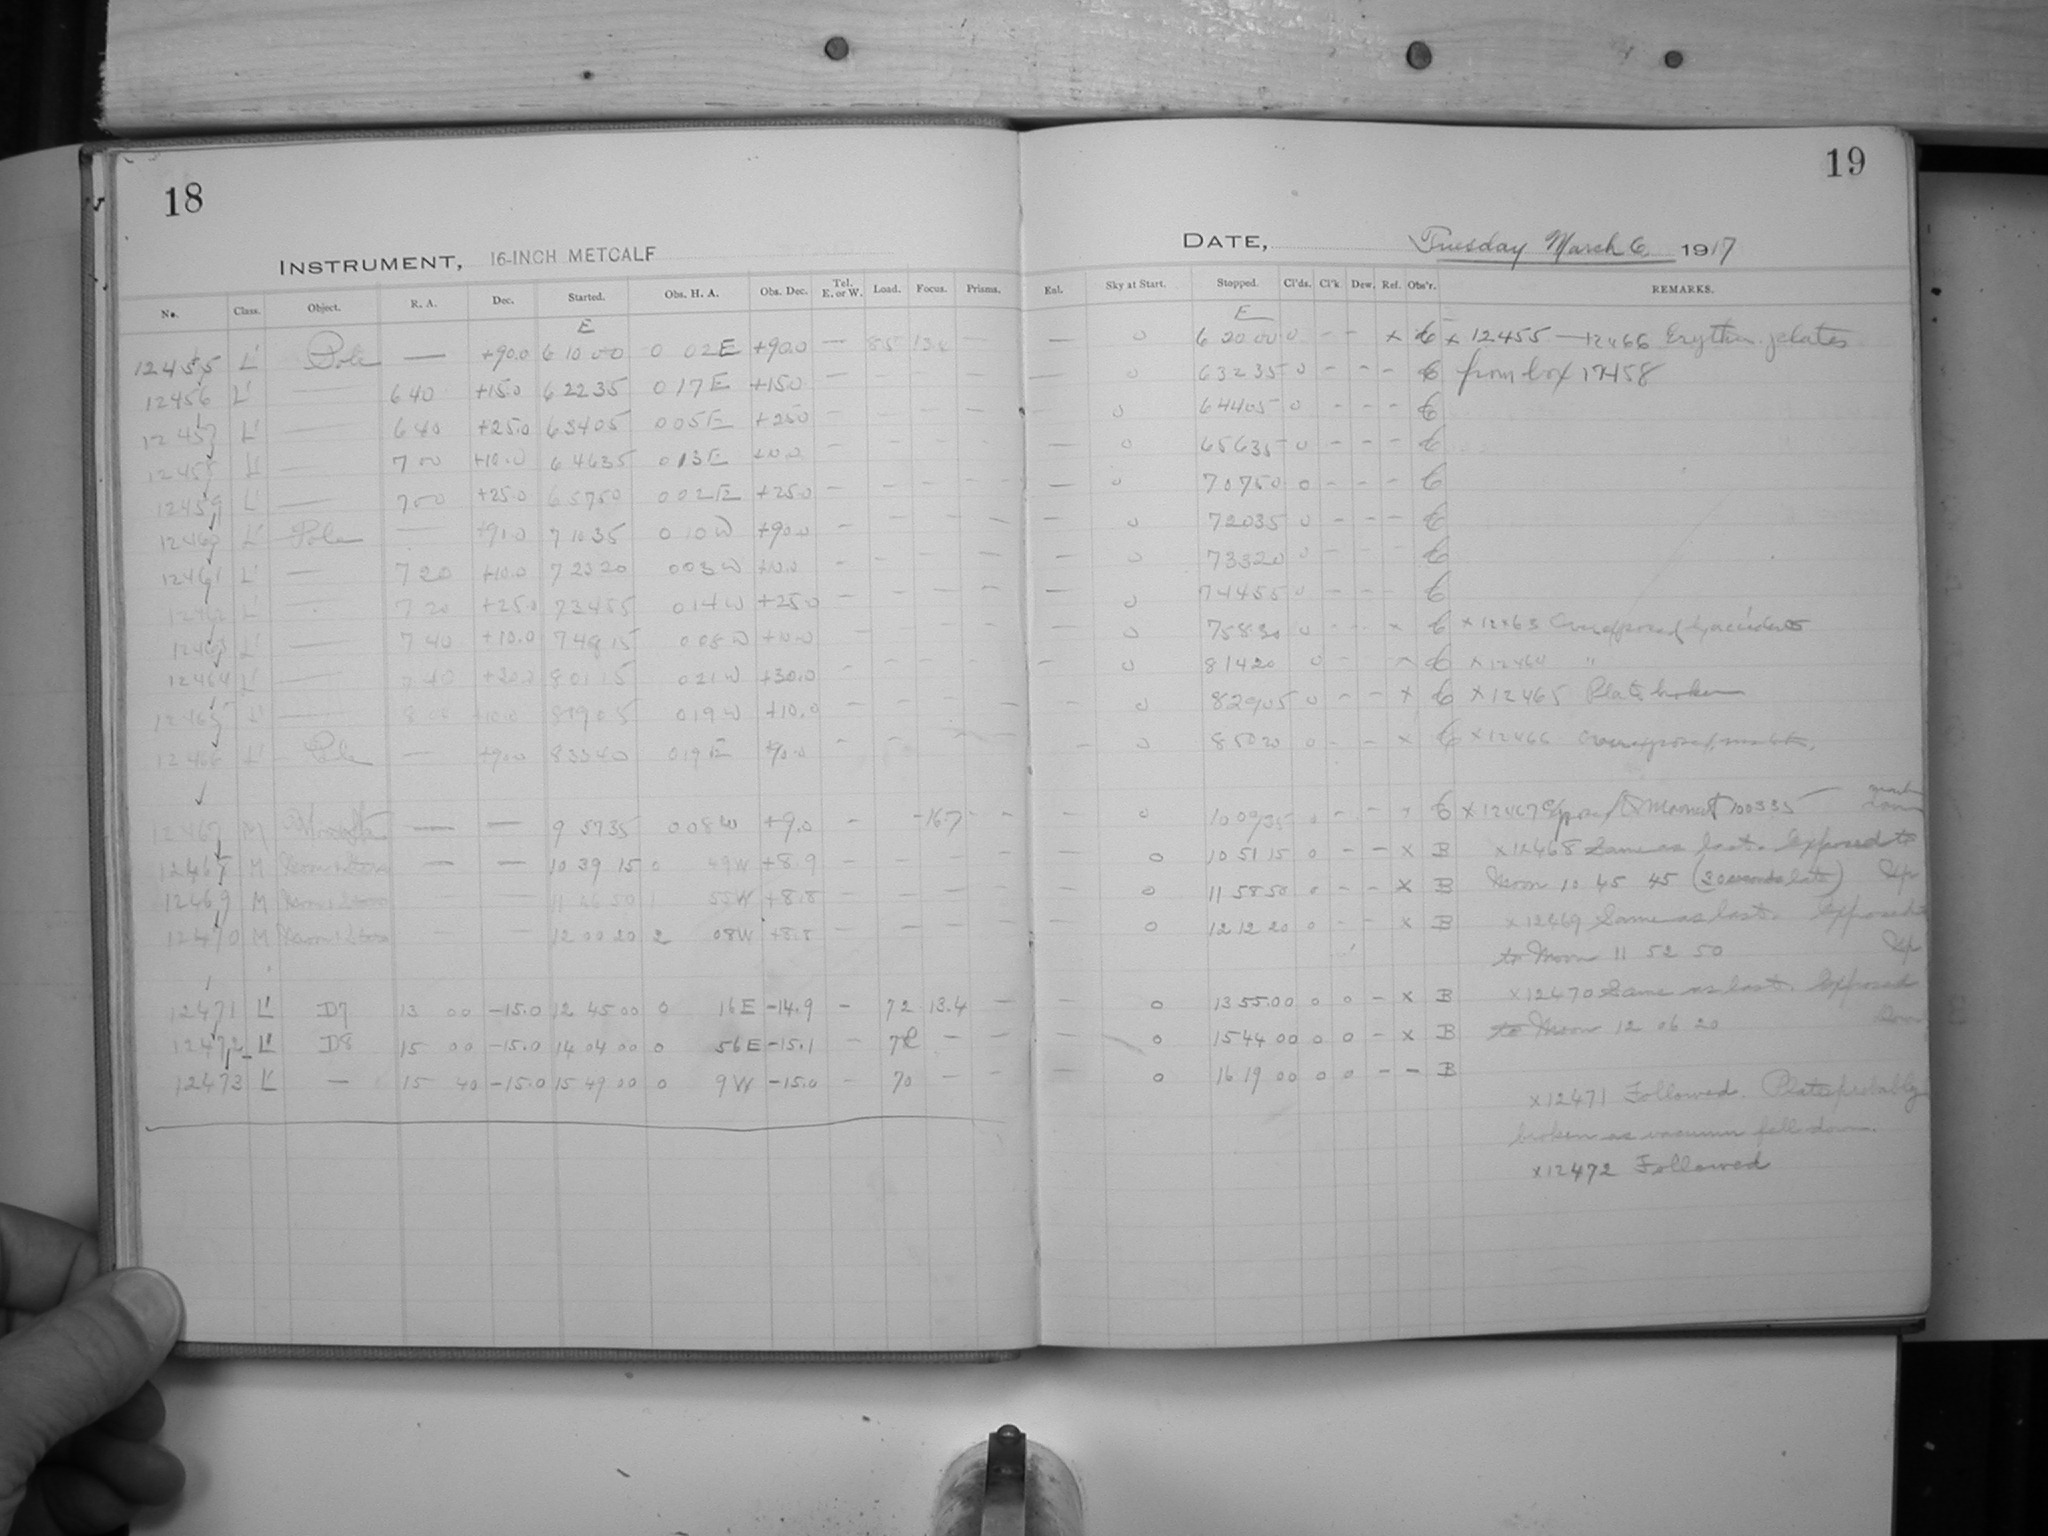 18
INSTRUMENT, 16-INCH METCALF
No. Class. Object. R. A. Dec. Started. Obs. H. A. Obs. Dec. Tel. E. or W. Load. Focus. Prisms.
E
12455 L' Pole — +90.0 6 10 00 0 02 E +90.0 —
12456 L' — 6 40 +15.0 6 22 35 0 17 E +15.0 — — — —
12457 L' — 6 40 +25.0 6 34 05 0 05 E +25.0 — — — —
12458 L' — 7 00 +10.0 6 46 35 0 13 E — — — —
12459 L' — 7 00 +25.0 6 57 50 0 02 E +25.0 — — — —
12460 L' Pole — 7 10 35 0 10 W +90.0 — — — —
12461 L' — 7 20 +10.0 7 23 20 0 03 W +10.0 — — — —
12462 L' — 7 20 +25.0 7 34 55 0 14 W +25.0 — — — —
12463 L' — 7 40 +10.0 7 48 15 0 08 W +10.0 — — — —
12464 L' — 7 40 8 01 15 0 21 W +30.0 — — — —
12465 L' — +10.0 8 19 05 0 19 W +10.0 — — — —
12466 L' Pole — +90.0 8 35 40 0 19 E +90.0 — — — —
12467 M — — 9 57 35 0 08 W +9.0 — -16.7 —
12468 M Moon & Stars — — 10 39 15 0 49 W +8.9 — — — —
12469 M Moon & Stars — — 11 46 50 1 55 W +8.8 — — — —
12470 M Moon & Stars — — 12 00 20 2 08 W +8.8 — — — —
12471 L' D7 13 00 -15.0 12 45 00 0 16 E -14.9 — 72 13.4 —
12472 L' D8 15 00 -15.0 14 04 00 0 56 E -15.1 — — —
12473 L' — 15 40 -15.0 15 49 00 0 9 W -15.0 — 70 — —
19
DATE, Tuesday March 6 1917
Enl. Sky at Start. Stopped. Cl'ds. Cl'k. Dew. Ref. Obs'r. REMARKS.
E
— 0 6 20 00 0 - - x C x 12455 — 12466 Erythro. plates
— 0 6 32 35 0 - - - C from box 17458
— 0 6 44 05 0 - - - C
— 0 6 56 35 0 - - - C
— 0 7 07 50 0 - - - C
— 0 7 20 35 0 - - - C
— 0 7 33 20 0 - - - C
— 0 7 44 55 0 - - - C
— 0 7 58 30 0 - - x C x 12463 Overexposed by accident
— 0 8 14 20 0 - - x C x 12464 "
— 0 8 29 05 0 - - x C x 12465 Plate broken
— 0 8 50 20 0 - - x C x 12466 Overexposed
— 0 0 - - C x 12467 Moon
— 0 10 51 15 0 - - x B x 12468 Same as last. Exposed to
— 0 11 58 50 0 - - x B Moon 10 45 45 (30 seconds late) Up
— 0 12 12 20 0 - - x B x 12469 Same as last. Exposed
to Moon 11 52 50 Up
— 0 13 55 00 0 0 - x B x 12470 Same as last. Exposed
— 0 15 44 00 0 0 - x B to Moon 12 06 20 Down
— 0 16 19 00 0 0 - - B
x 12471 Followed. Plate probably
broken as vacuum fell down.
x 12472 Followed